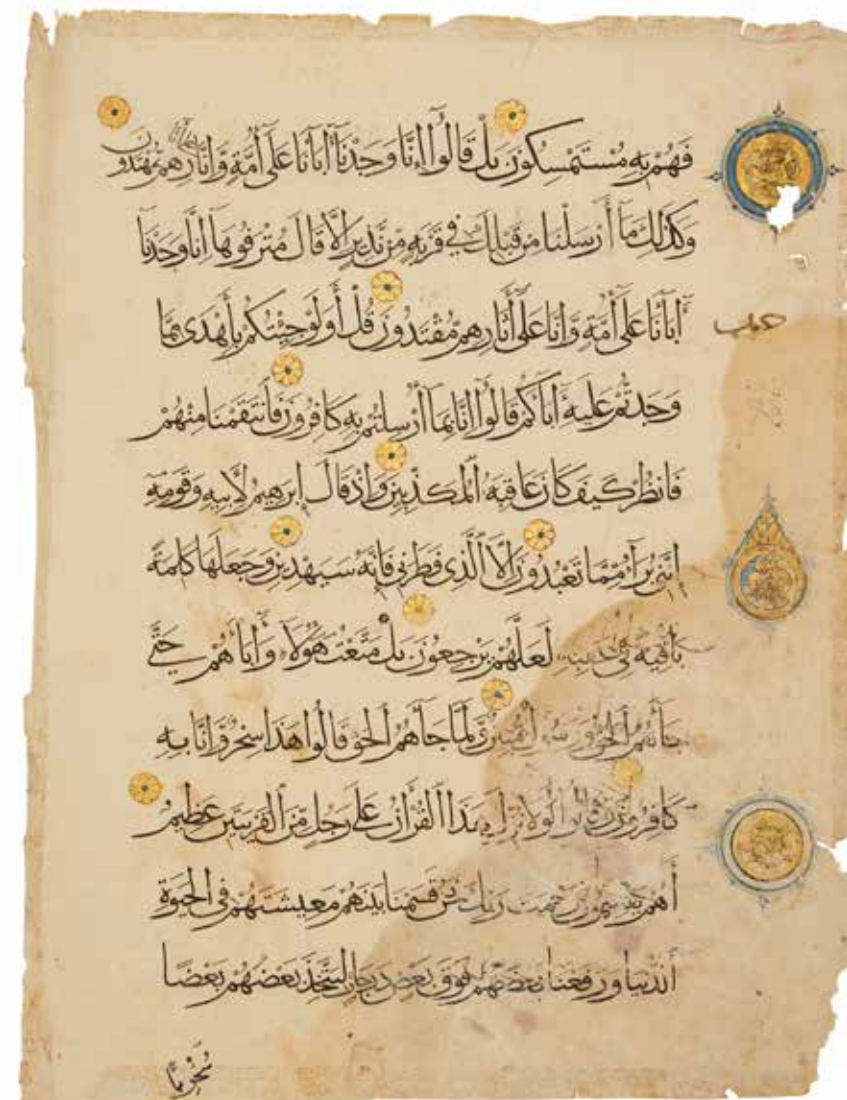 فَهُمْ بِهِ مُسْتَمْسِكُونَ بَلْ قَالُوا إِنَّا وَجَدْنَا آبَاءَنَا عَلَى أُمَّةٍ وَإِنَّا عَلَى آثَارِهِمْ مُهْتَدُونَ
وَكَذَلِكَ مَا أَرْسَلْنَا مِنْ قَبْلِكَ فِي قَرْيَةٍ مِنْ نَذِيرٍ إِلَّا قَالَ مُتْرَفُوهَا إِنَّا وَجَدْنَا
آبَاءَنَا عَلَى أُمَّةٍ وَإِنَّا عَلَى آثَارِهِمْ مُقْتَدُونَ قُلْ أَوَلَوْ جِئْتُكُمْ بِأَهْدَى مِمَّا
وَجَدْتُمْ عَلَيْهِ آبَاءَكُمْ قَالُوا إِنَّا بِمَا أُرْسِلْتُمْ بِهِ كَافِرُونَ فَانْتَقَمْنَا مِنْهُمْ
فَانْظُرْ كَيْفَ كَانَ عَاقِبَةُ الْمُكَذِّبِينَ وَإِذْ قَالَ إِبْرَهِيمُ لِأَبِيهِ وَقَوْمِهِ
إِنَّنِي بَرَاءٌ مِمَّا تَعْبُدُونَ إِلَّا الَّذِي فَطَرَنِي فَإِنَّهُ سَيَهْدِينِ وَجَعَلَهَا كَلِمَةً
بَاقِيَةً فِي لَعَلَّهُمْ يَرْجِعُونَ بَلْ مَتَّعْتُ هَؤُلَاءِ وَآبَاءَهُمْ حَتَّى
الْحَقُّ وَلَمَّا جَاءَهُمُ الْحَقُّ قَالُوا هَذَا سِحْرٌ وَإِنَّا بِهِ
كَافِرُونَ لَوْلَا نُزِّلَ هَذَا الْقُرْآنُ عَلَى رَجُلٍ مِنَ الْقَرْيَتَيْنِ عَظِيمٍ
أَهُمْ رَبِّكَ نَحْنُ قَسَمْنَا بَيْنَهُمْ مَعِيشَتَهُمْ فِي الْحَيَوةِ
الدُّنْيَا وَرَفَعْنَا بَعْضَهُمْ فَوْقَ بَعْضٍ دَرَجَاتٍ لِيَتَّخِذَ بَعْضُهُمْ بَعْضًا
سُخْرِيًّا